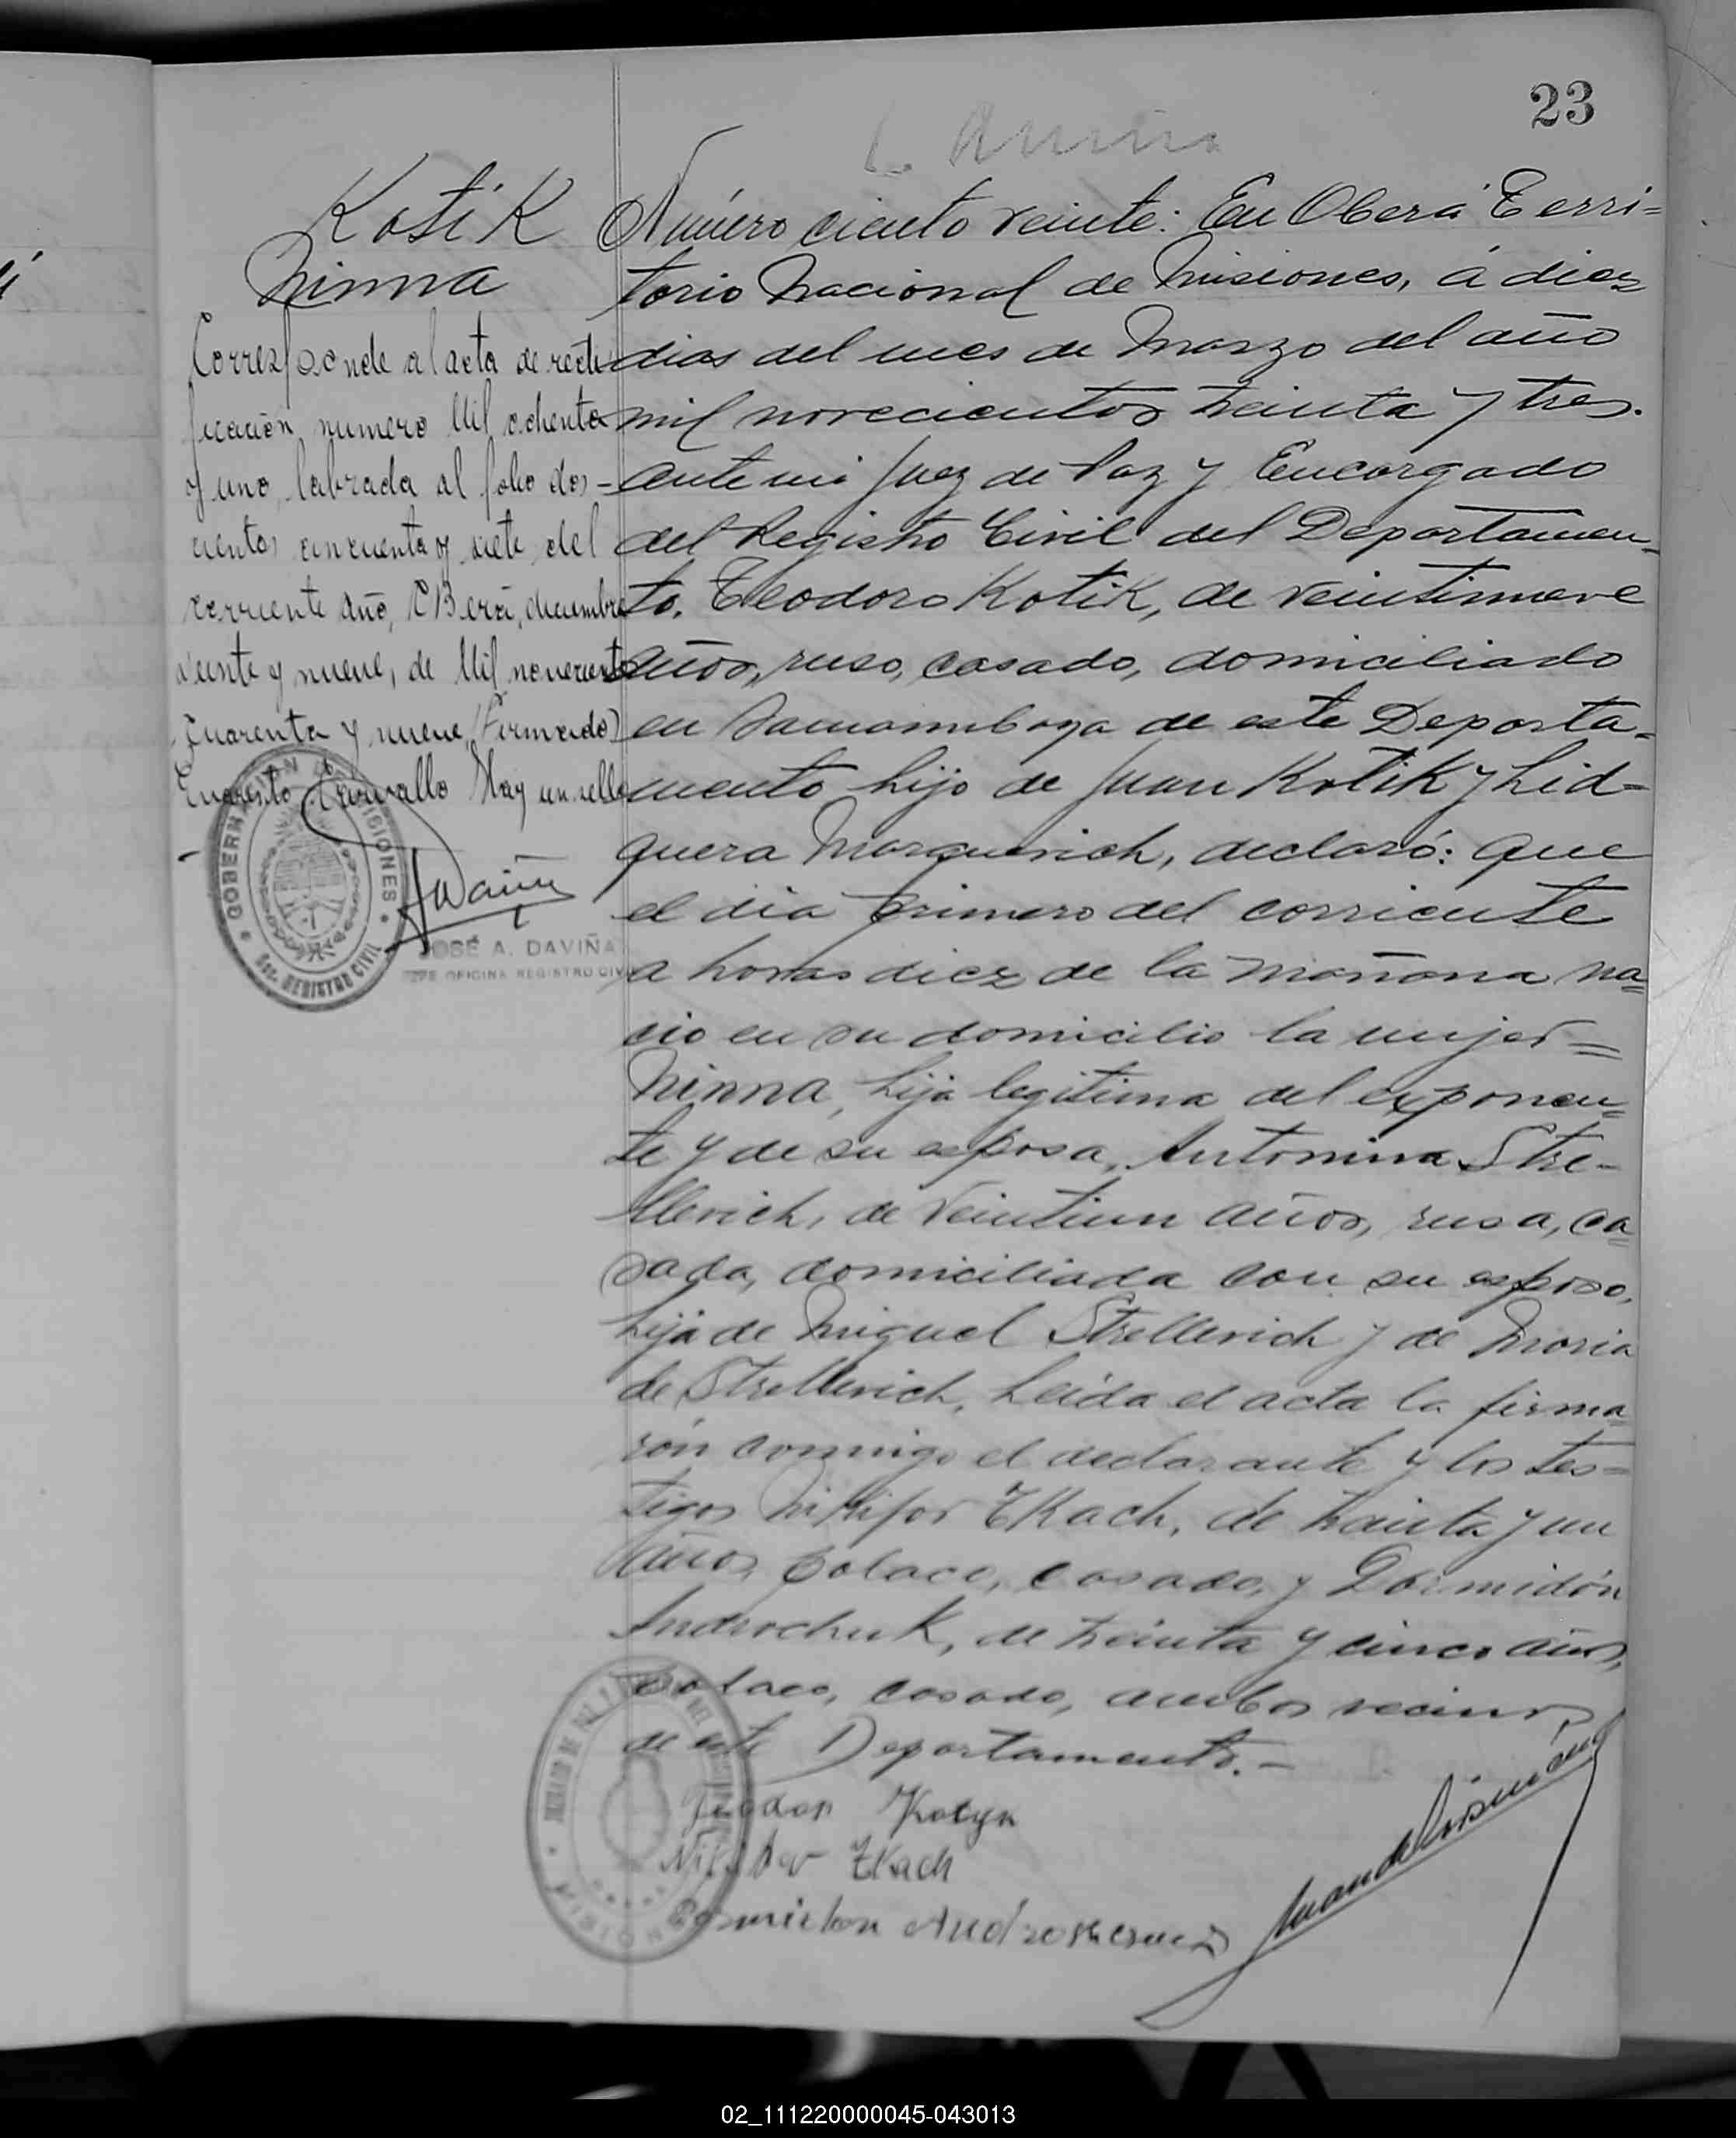 23
Kotik
Ninna
Corresponde al acta de recti-
ficación numero Mil ochenta
y uno, labrada al folio dos-
cientos cincuenta y siete del
corriente año, OBerá, diciembre
veinte y nueve, de Mil novecientos
Cuarenta y nueve (Firmado)
Hay un sello
GOBERNACION DE MISIONES
REGISTRO CIVIL
JOSÉ A. DAVIÑA
JEFE OFICINA REGISTRO CIVIL
Número ciento veinte: En Oberá Terri=
torio Nacional de Misiones, á diez
dias del mes de Marzo del año
mil novecientos treinta y tres.
ante mi Juez de Paz y Encargado
del Registro Civil del Departamen-
to. Teodoro Kotik, de veintinueve
años, ruso, casado, domiciliado
en de este Departa-
mento hijo de Juan Kotik y Lid=
quera Marquevich, declaró: Que
el dia primero del corriente
a horas diez de la mañana na=
cio en su domicilio la mujer=
Ninna, hija legitima del exponen=
te y de su esposa, Antonina Stre-
llevich, de veintiun años, rusa, ca=
sada, domiciliada con su esposo,
hija de Miguel Strellevich y de Maria
de Strellevich, Leida el acta la firma=
rón conmigo el declarante y los tes=
tigos Nikifor Tkach, de treinta y un
años, polaco, casado, y Dormidón
Androchuk, de treinta y cinco años,
polaco, casado, ambos vecinos
de este Departamento.-
Teodor Kotyk
Nikifor Tkach
MISIONES